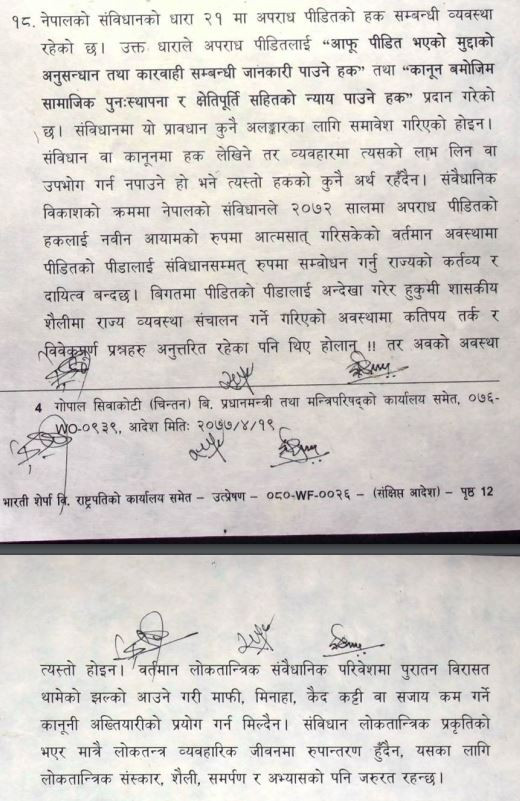 १८. नेपालको संविधानको धारा २१ मा अपराध पीडितको हक सम्बन्धी व्यवस्था
रहेको छ। उक्त धाराले अपराध पीडितलाई "आफू पीडित भएको मुद्दाको
अनुसन्धान तथा कारवाही सम्बन्धी जानकारी पाउने हक" तथा "कानून बमोजिम
सामाजिक पुनःस्थापना र क्षेतिपूर्ति सहितको न्याय पाउने हक" प्रदान गरेको
छ। संविधानमा यो प्रावधान कुनै अलङ्कारका लागि समावेश गरिएको होइन।
संविधान वा कानूनमा हक लेखिने तर व्यवहारमा त्यसको लाभ लिन वा
उपभोग गर्न नपाउने हो भने त्यस्तो हकको कुनै अर्थ रहँदैन। संवैधानिक
विकाशको क्रममा नेपालको संविधानले २०७२ सालमा अपराध पीडितको
हकलाई नवीन आयामको रुपमा आत्मसात् गरिसकेको वर्तमान अवस्थामा
पीडितको पीडालाई संविधानसम्मत् रुपमा सम्वोधन गर्नु राज्यको कर्तव्य र
दायित्व बन्दछ। बिगतमा पीडितको पीडालाई अन्देखा गरेर हुकुमी शासकीय
शैलीमा राज्य व्यवस्था संचालन गर्ने गरिएको अवस्थामा कतिपय तर्क र
विवेकपूर्ण प्रश्नहरु अनुत्तरित रहेका पनि थिए होलान् !! तर अवको अवस्था
4 गोपाल सिवाकोटी (चिन्तन) बि. प्रधानमन्त्री तथा मन्त्रिपरिषद्को कार्यालय समेत, ०७६-
WO-०९३९, आदेश मितिः २०७७/४/१९
भारती शेर्पा बि. राष्ट्रपतिको कार्यालय समेत – उत्प्रेषण – ०८०-WF-००२६ – (संक्षिप्त आदेश) – पृष्ठ 12
त्यस्तो होइन। वर्तमान लोकतान्त्रिक संवैधानिक परिवेशमा पुरातन विरासत
थामेको झल्को आउने गरी माफी, मिनाहा, कैद कट्टी वा सजाय कम गर्ने
कानूनी अख्तियारीको प्रयोग गर्न मिल्दैन। संविधान लोकतान्त्रिक प्रकृतिको
भएर मात्रै लोकतन्त्र व्यवहारिक जीवनमा रुपान्तरण हुँदैन, यसका लागि
लोकतान्त्रिक संस्कार, शैली, समर्पण र अभ्यासको पनि जरुरत रहन्छ।